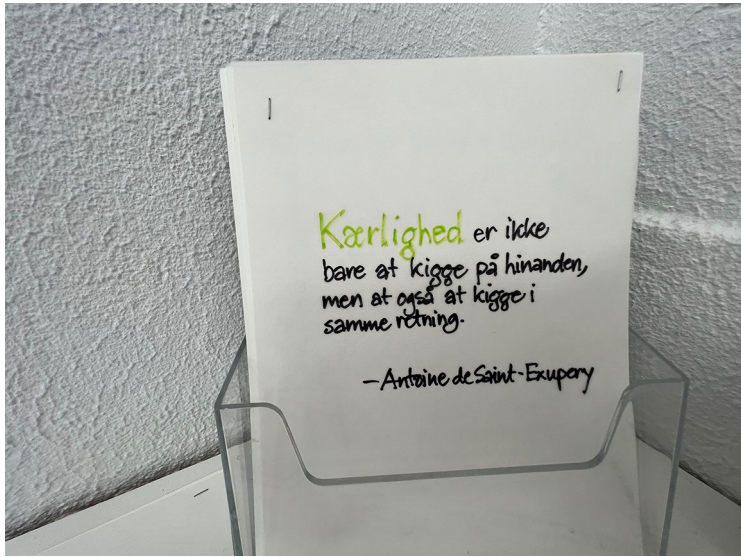 Kærlighed er ikke
bare at kigge på hinanden,
men at også at kigge i
samme retning.
—Antoine de Saint-Exupery